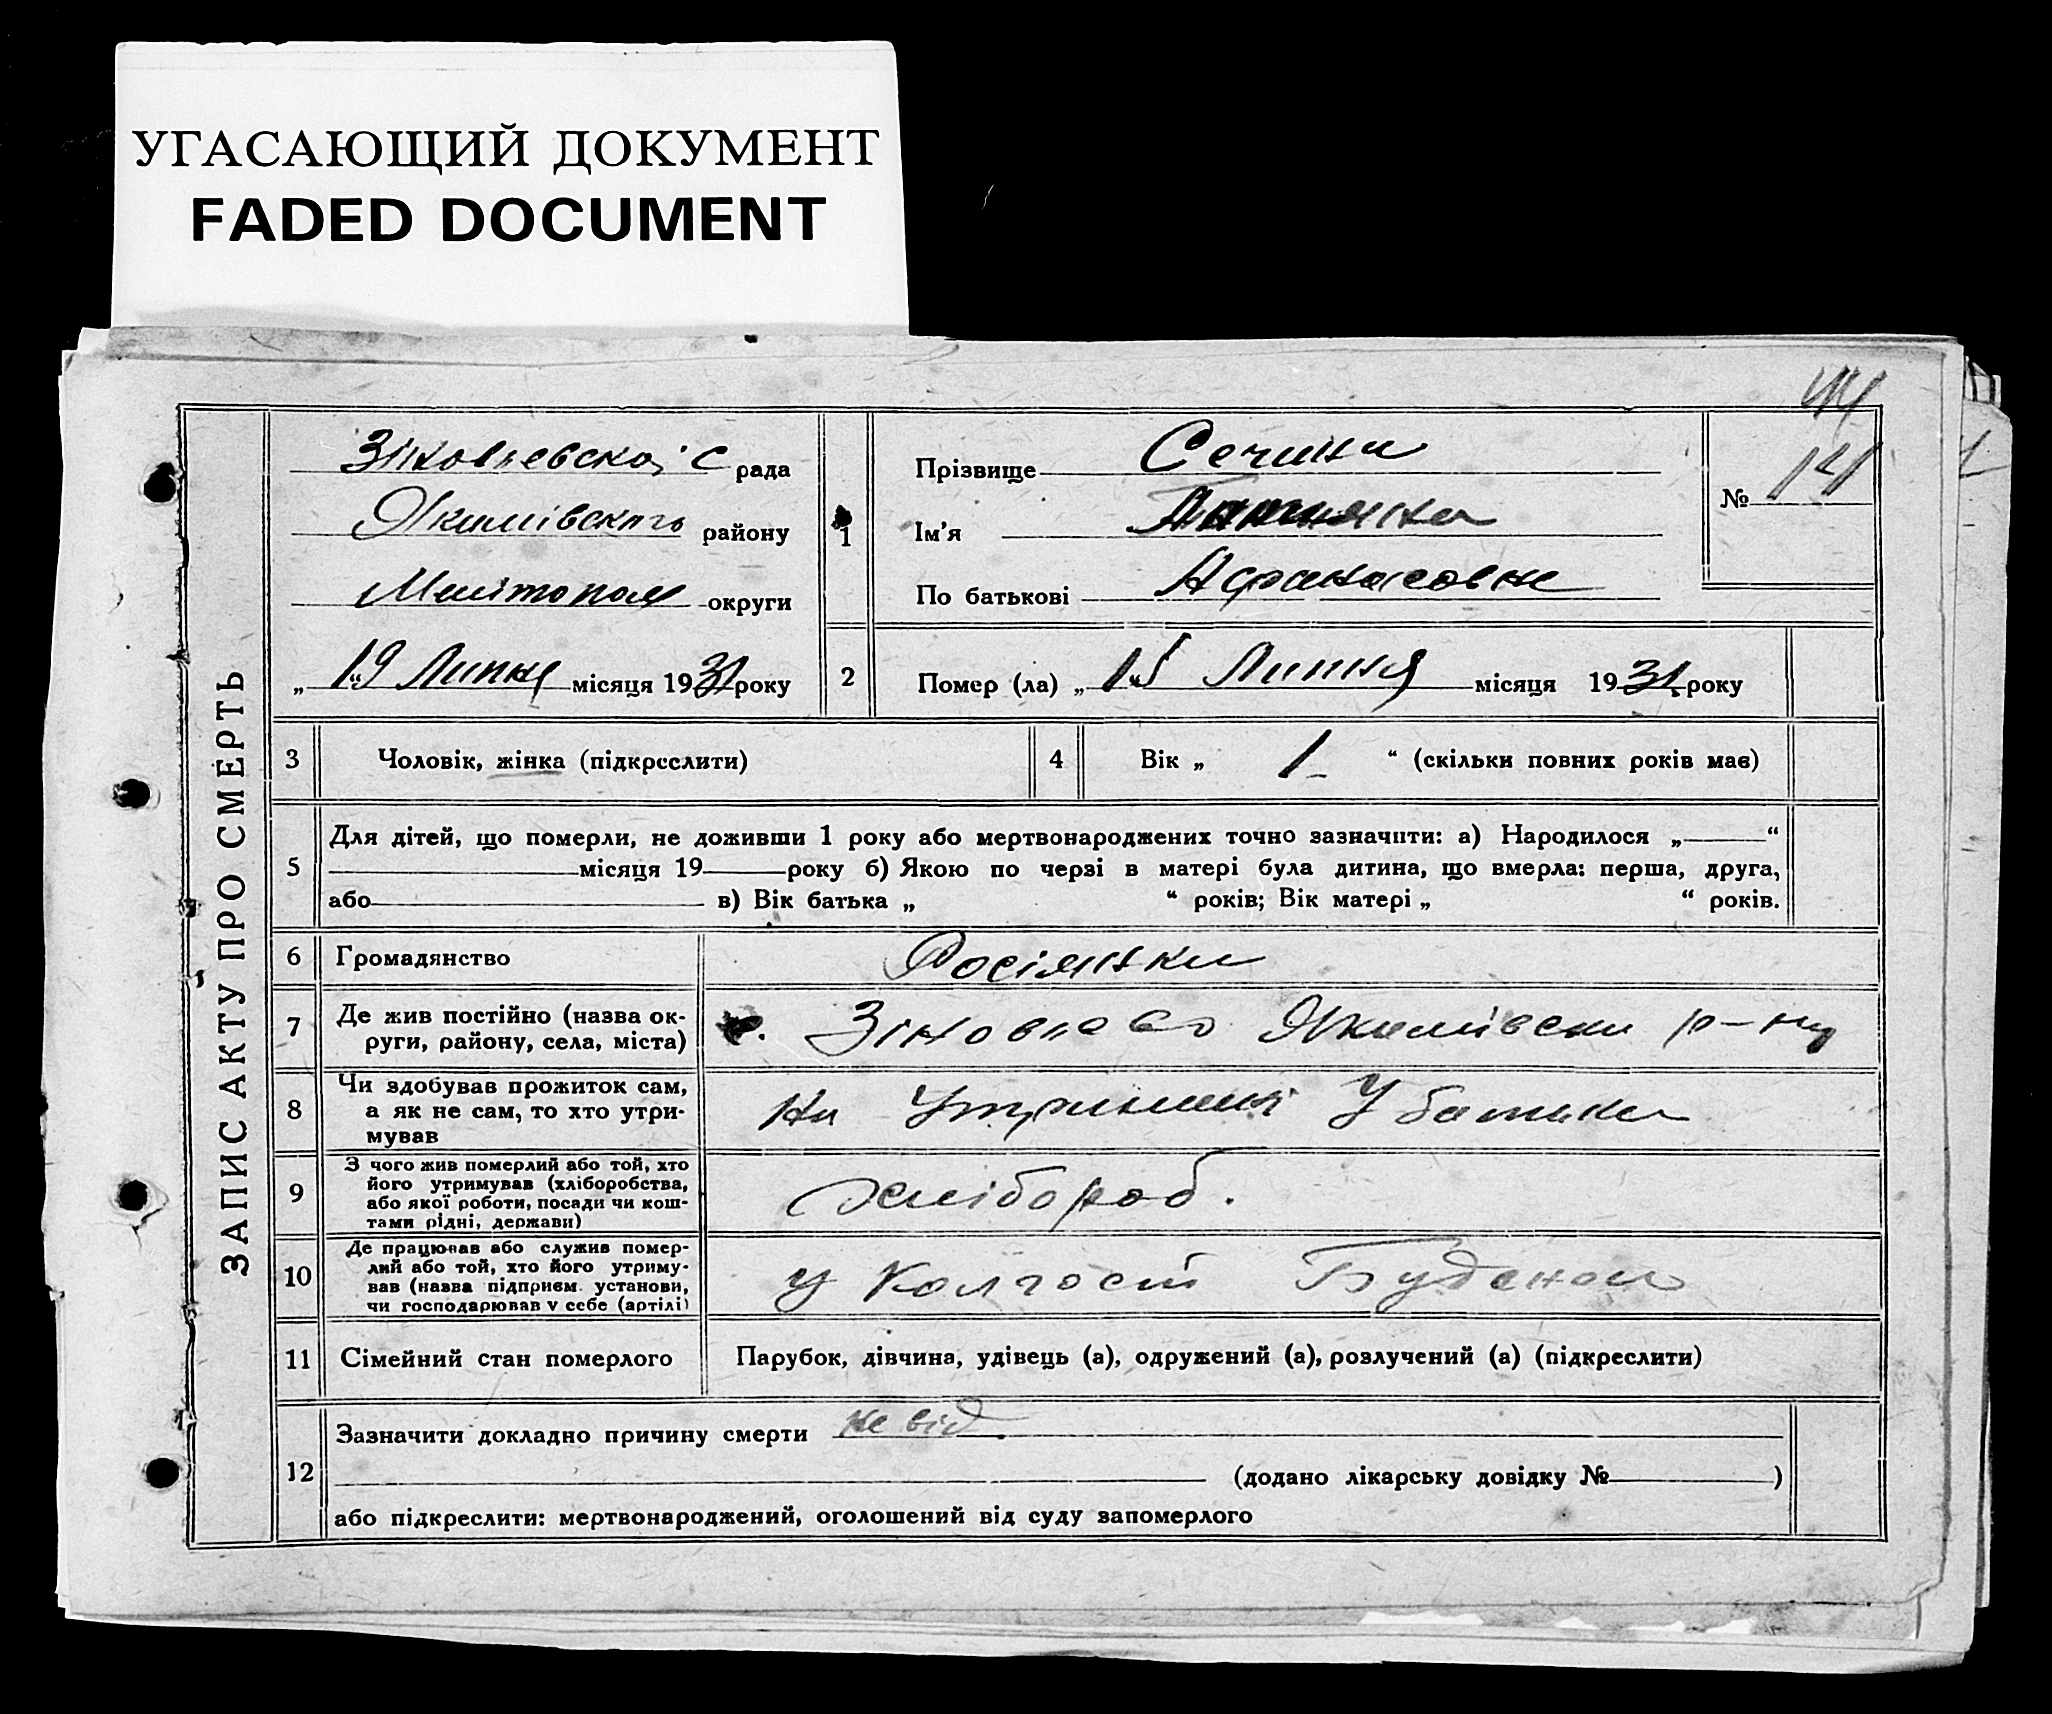 УГАСАЮЩИЙ ДОКУМЕНТ
FADED DOCUMENT
ЗАПИС АКТУ ПРО СМЕРТЬ
Зіновьевской С рада
Якимівского району
Мелітополя округи
„ 19 “ Липня місяця 1931 року
1
Прізвище Сечина
Ім'я
По батькові Афанасовна
№ 141
2
Помер (ла) „ 15 “ Липня місяця 1931 року
3 Чоловік, жінка (підкреслити)
4 Вік „ 1 “ (скільки повних років має)
5
Для дітей, що померли, не доживши 1 року або мертвонароджених точно зазначити: а) Народилося „ “
місяця 19 року б) Якою по черзі в матері була дитина, що вмерла: перша, друга,
або в) Вік батька „ “ років; Вік матері „ “ років.
6 Громадянство Росіянка
7 Де жив постійно (назва ок-
руги, району, села, міста)
с. Зіновьево Якимівськ р-ну
8 Чи здобував прожиток сам,
а як не сам, то хто утри-
мував
на Утриманні У батька
9 З чого жив померлий або той, хто
його утримував (хліборобства,
або якої роботи, посади чи кош-
тами рідні, держави)
хлібороб.
10 Де працював або служив помер-
лий або той, хто його утриму-
вав (назва підприєм. установи,
чи господарював у себе (артілі)
у Колгосп Буденого
11 Сімейний стан померлого Парубок, дівчина, удівець (а), одружений (а), розлучений (а) (підкреслити)
12
Зазначити докладно причину смерти не від.
(додано лікарську довідку № )
або підкреслити: мертвонароджений, оголошений від суду запомерлого